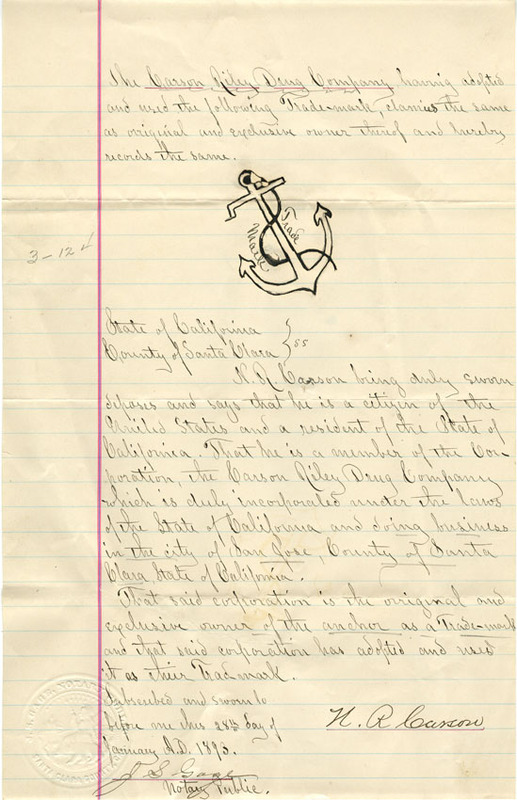 The Carson Riley Drug Company having adopted
and used the following Trade-mark, claims the same
as original and exclusive owner thereof and hereby
records the same.
Trade
Mark
3-12
State of California
County of Santa Clara } ss
N. R. Carson being duly sworn
deposes and says that he is a citizen of the
United States and a resident of the State of
California. That he is a member of the Cor-
poration, the Carson Riley Drug Company
which is duly incorporated under the laws
of the State of California and doing business
in the city of San Jose, County of Santa
Clara State of California.
That said corporation is the original and
exclusive owner of the anchor as a Trade-mark
and that said corporation has adopted and used
it as their Trad-mark.
Subscribed and sworn to
before me this 28th day of
January A.D. 1893.
N. R. Carson
Notary Public.